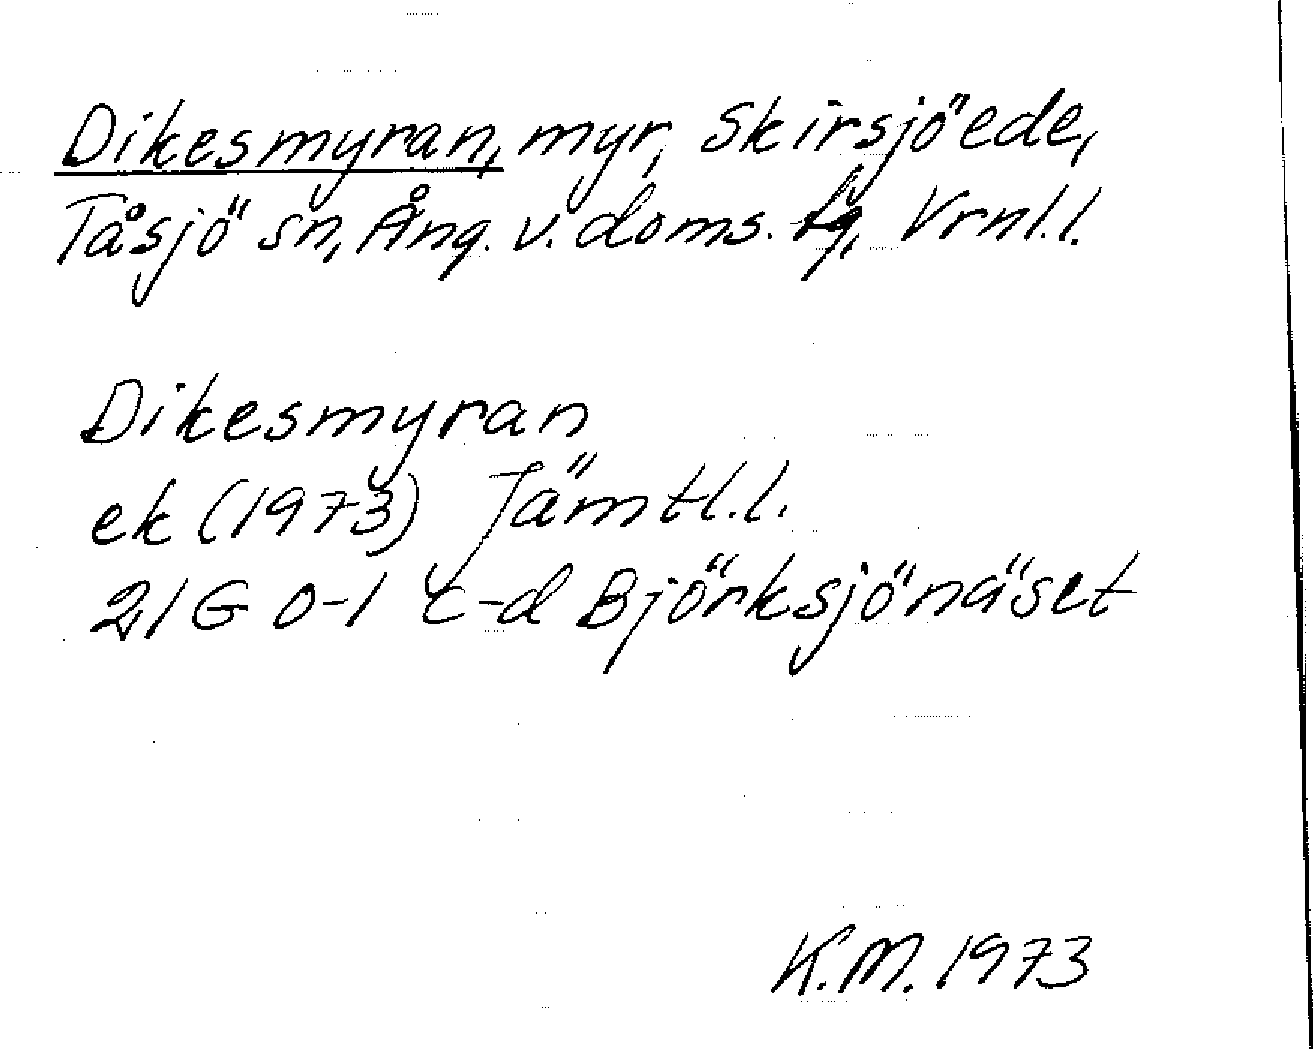 Dikesmyran, myr, Skirsjöede,
Tåsjö sn, Ång. v. doms. fg, Vrnl.l.
Dikesmyran
ek (1973) Jämtl.l.
21G 0-1 c-d Björksjönäset
K.M. 1973